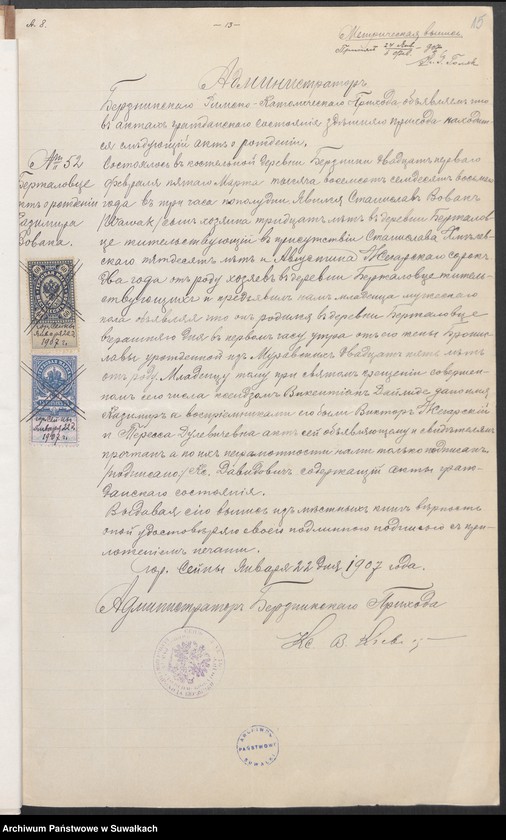 А. 8.
— 13 —
15
Метрическая выпись
Администраторъ
Бержникскаго Римско-Католическаго Прихода объявляетъ что
въ актахъ гражданскаго состоянія здѣшняго прихода находит-
ся слѣдующій актъ о рожденіи.
№ 52
Состоялось въ костельной деревни Бержники двадцать перваго
Февраля пятаго Марта тысяча восемсотъ семдесятъ восьмого
года въ три часа пополудни. Явился Станиславъ Вованъ
сынъ хозяина тридцать лѣтъ въ деревни Бержалов-
це жительствующій въ присутствіи Станислава
скаго пятдесятъ лѣтъ и Августина Жегарскаго сорокъ
два года отъ роду хозяевъ въ деревни Бержаловце житель-
ствующихъ и предъявилъ намъ младенца мужескаго
пола объявляя что онъ родился въ деревни Бержаловце
вчерашняго дня въ первомъ часу утра отъ его жены Брони-
славы урожденной изъ двадцать пять лѣтъ
отъ роду. Младенцу тому при святомъ крещеніи совершен-
номъ сего числа ксендзомъ Викентіемъ дано имя
Казимиръ а воспріемниками его были Викторъ Жегарскій
и Тереса актъ сей объявляющему и свидѣтелямъ
прочтенъ а по ихъ неграмотности нами только подписанъ
/подписано/ Кс. Давидовичъ содержащій акты граж-
данскаго состоянія.
Выдавая сію выпись изъ мѣстныхъ книгъ вѣрность
оной удостовѣряю своей подлинной подписью съ при-
ложеніемъ печати.
Гор. Сейны Января 22 дня 1907 года.
Администраторъ Бержникскаго Прихода
Кс. В.
Бержаловце
актъ о рожденіи
Казимира
Вована.
1907 г.
1907 г.
ARCHIWUM
PAŃSTWOWE
SUWAŁKI
Archiwum Państwowe w Suwałkach